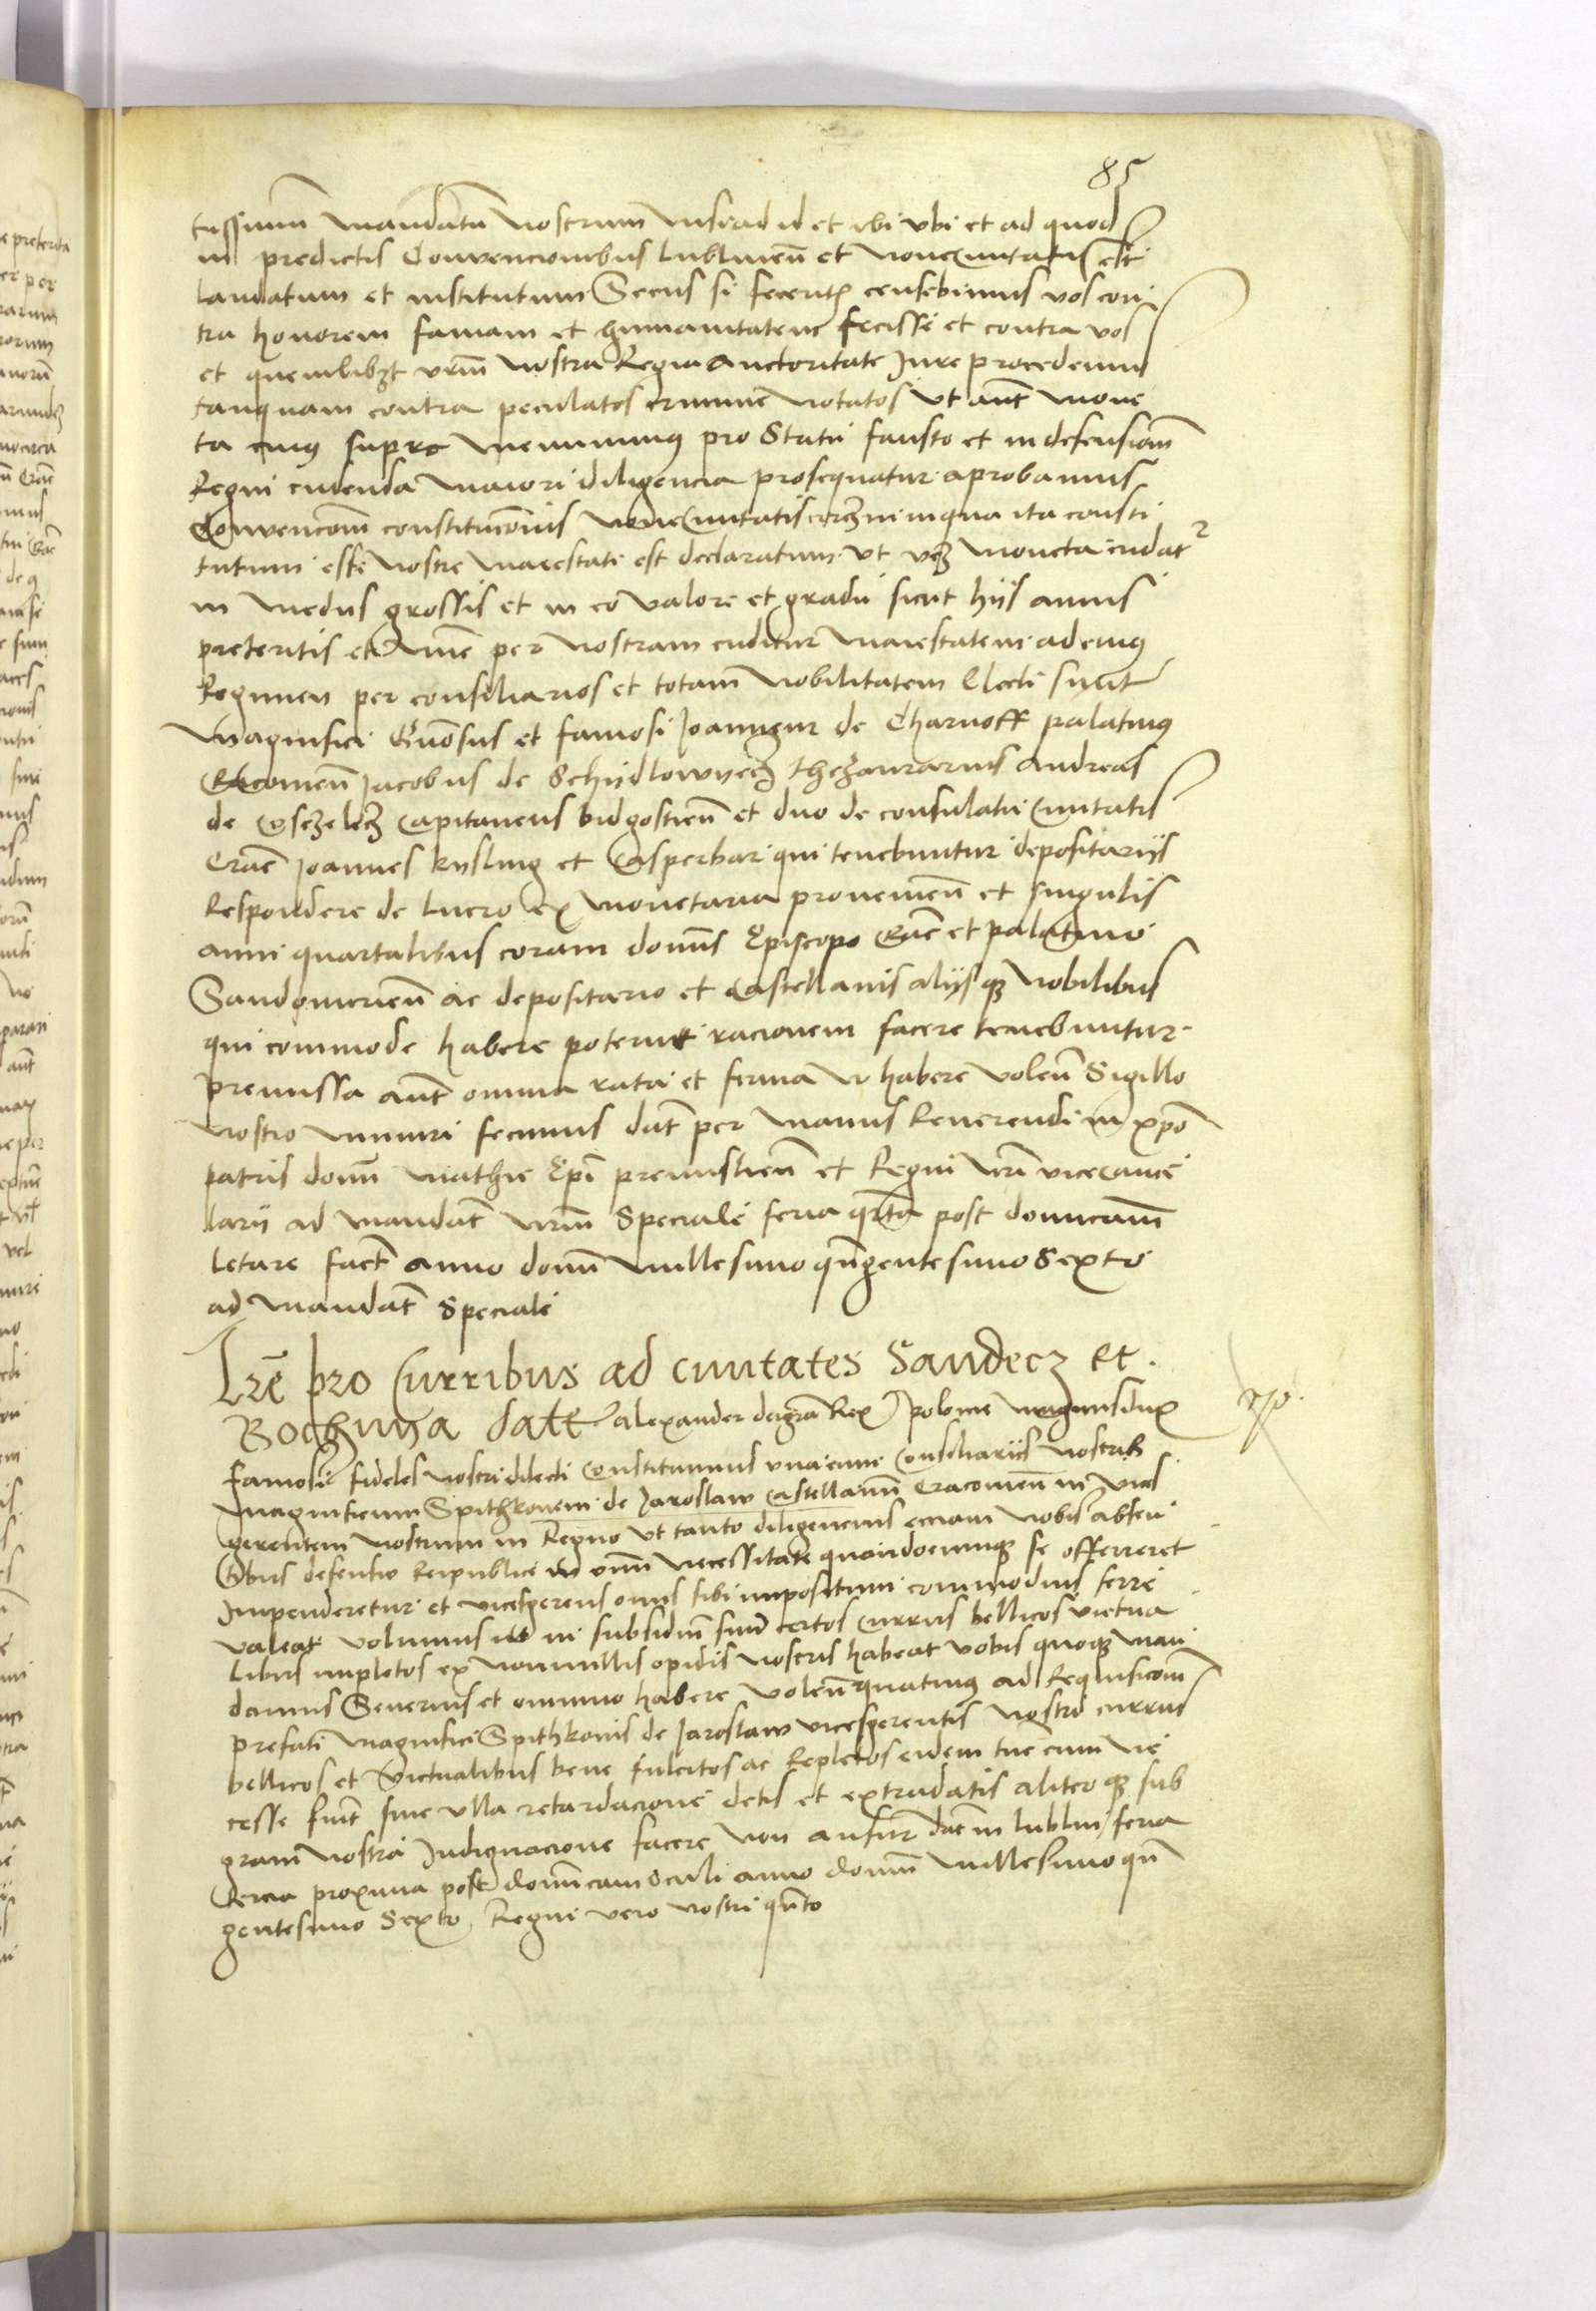 85
tussium mandatum nostrum nisi ad id et ibi ubi et ad quod
in predictis Convencionibus lublinen̄ et nove Civitatis est
laudatum et institutum Secus si feceritis censebimus vos con
tra honorem famam et humanitatem fecisse et contra vos
et quemlibet vr̄m nostra Regia auctoritate Jure procedemus
tanquam contra peculatos crimine notatos Ut aut̄ mone
ta cuius supra meminimus pro Statu fausto et in defensiom̄
Regni cudenda maiori diligencia prosequatur aprobamus
Convenciom̄ constitucionis nove Civitatis in qua ita consti
tutum esse nostre maiestati est declaratum ut moneta cudat
in medus grossis et in eo valore et gradu sicut hijs annis
preteritis et nunc per nostram cuditur maiestatem ad cuius
Regimen per consiliarios et totam nobilitatem Electi sunt
Magnifici et famosi Joannem de Charnoff palatinus
Jacobus de Schijdlowyecz thezaurarius Andreas
de Cosczelecz Capitaneus bidgostien̄ et duo de consulatu Civitatis
Crac̄ Joannes kysling et Casper bar qui tenebuntur depositarijs
Respondere de lucro ex monetaria provenien̄ et singulis
anni quartalibus coram domīs Episcopo Crac̄ et palatino
Sandomirien̄ ac depositario et Castellanis alijsq3 nobilibus
qui commode habere poterint racionem facere tenebuntur
premissa aut̄ omnia rata et firma habere volen̄ Sigillo
nostro muniri fecimus dat̄ per manus Reverendi in xpō
patris domī mathie Epī premislien̄ et Regni nr̄i vicecance
larij ad mandat̄ nr̄m Speciale feria qrta post dominicam̄
letare fact̄ anno domī millesimo qn̄gentesimo Sexto
ad mandat̄ Speciale
Lr̄e pro Curribus ad civitates Sandecz et
Bochnya date Alexander dei gra Rex polonie magnus dux
famosi fideles nostri dilecti Constituimus una cum Consiliarijs nostris
magnificum Spithkonem de Jaroslaw Castellanum Cracovien̄ in vices
gerentem nostrum in Regno ut tanto diligencius eciam nobis absen
tibus defensio Reipublice in omni necessitate quandocumq3 se offerret
Impenderetur et vicesgerens onus sibi impositum commodius ferre
valeat volumus ut in subsidium suum certos Currus bellicos victua
libus impletos ex nonnullis opidis nostris habeat vobis quoq3 man
damus Severius et omnino habere volen̄ quatinus ad Requisiciom̄
prefati magnifici Spithkonis de Jaroslaw vicesgerentis nostri currus
bellicos et victualibus bene fulcitos ac Repletos eidem tuc cum ne
cesse fuit̄ sine ulla retardacione detis et extradatis aliterq3 sub
gram̄ nostra Indignacione facere non ausur̄ dat̄ in lublin feria
tercia proxima post dominicam oculi anno domī millesimo qn̄
gentesimo Sexto Regni vero nostri qn̄to